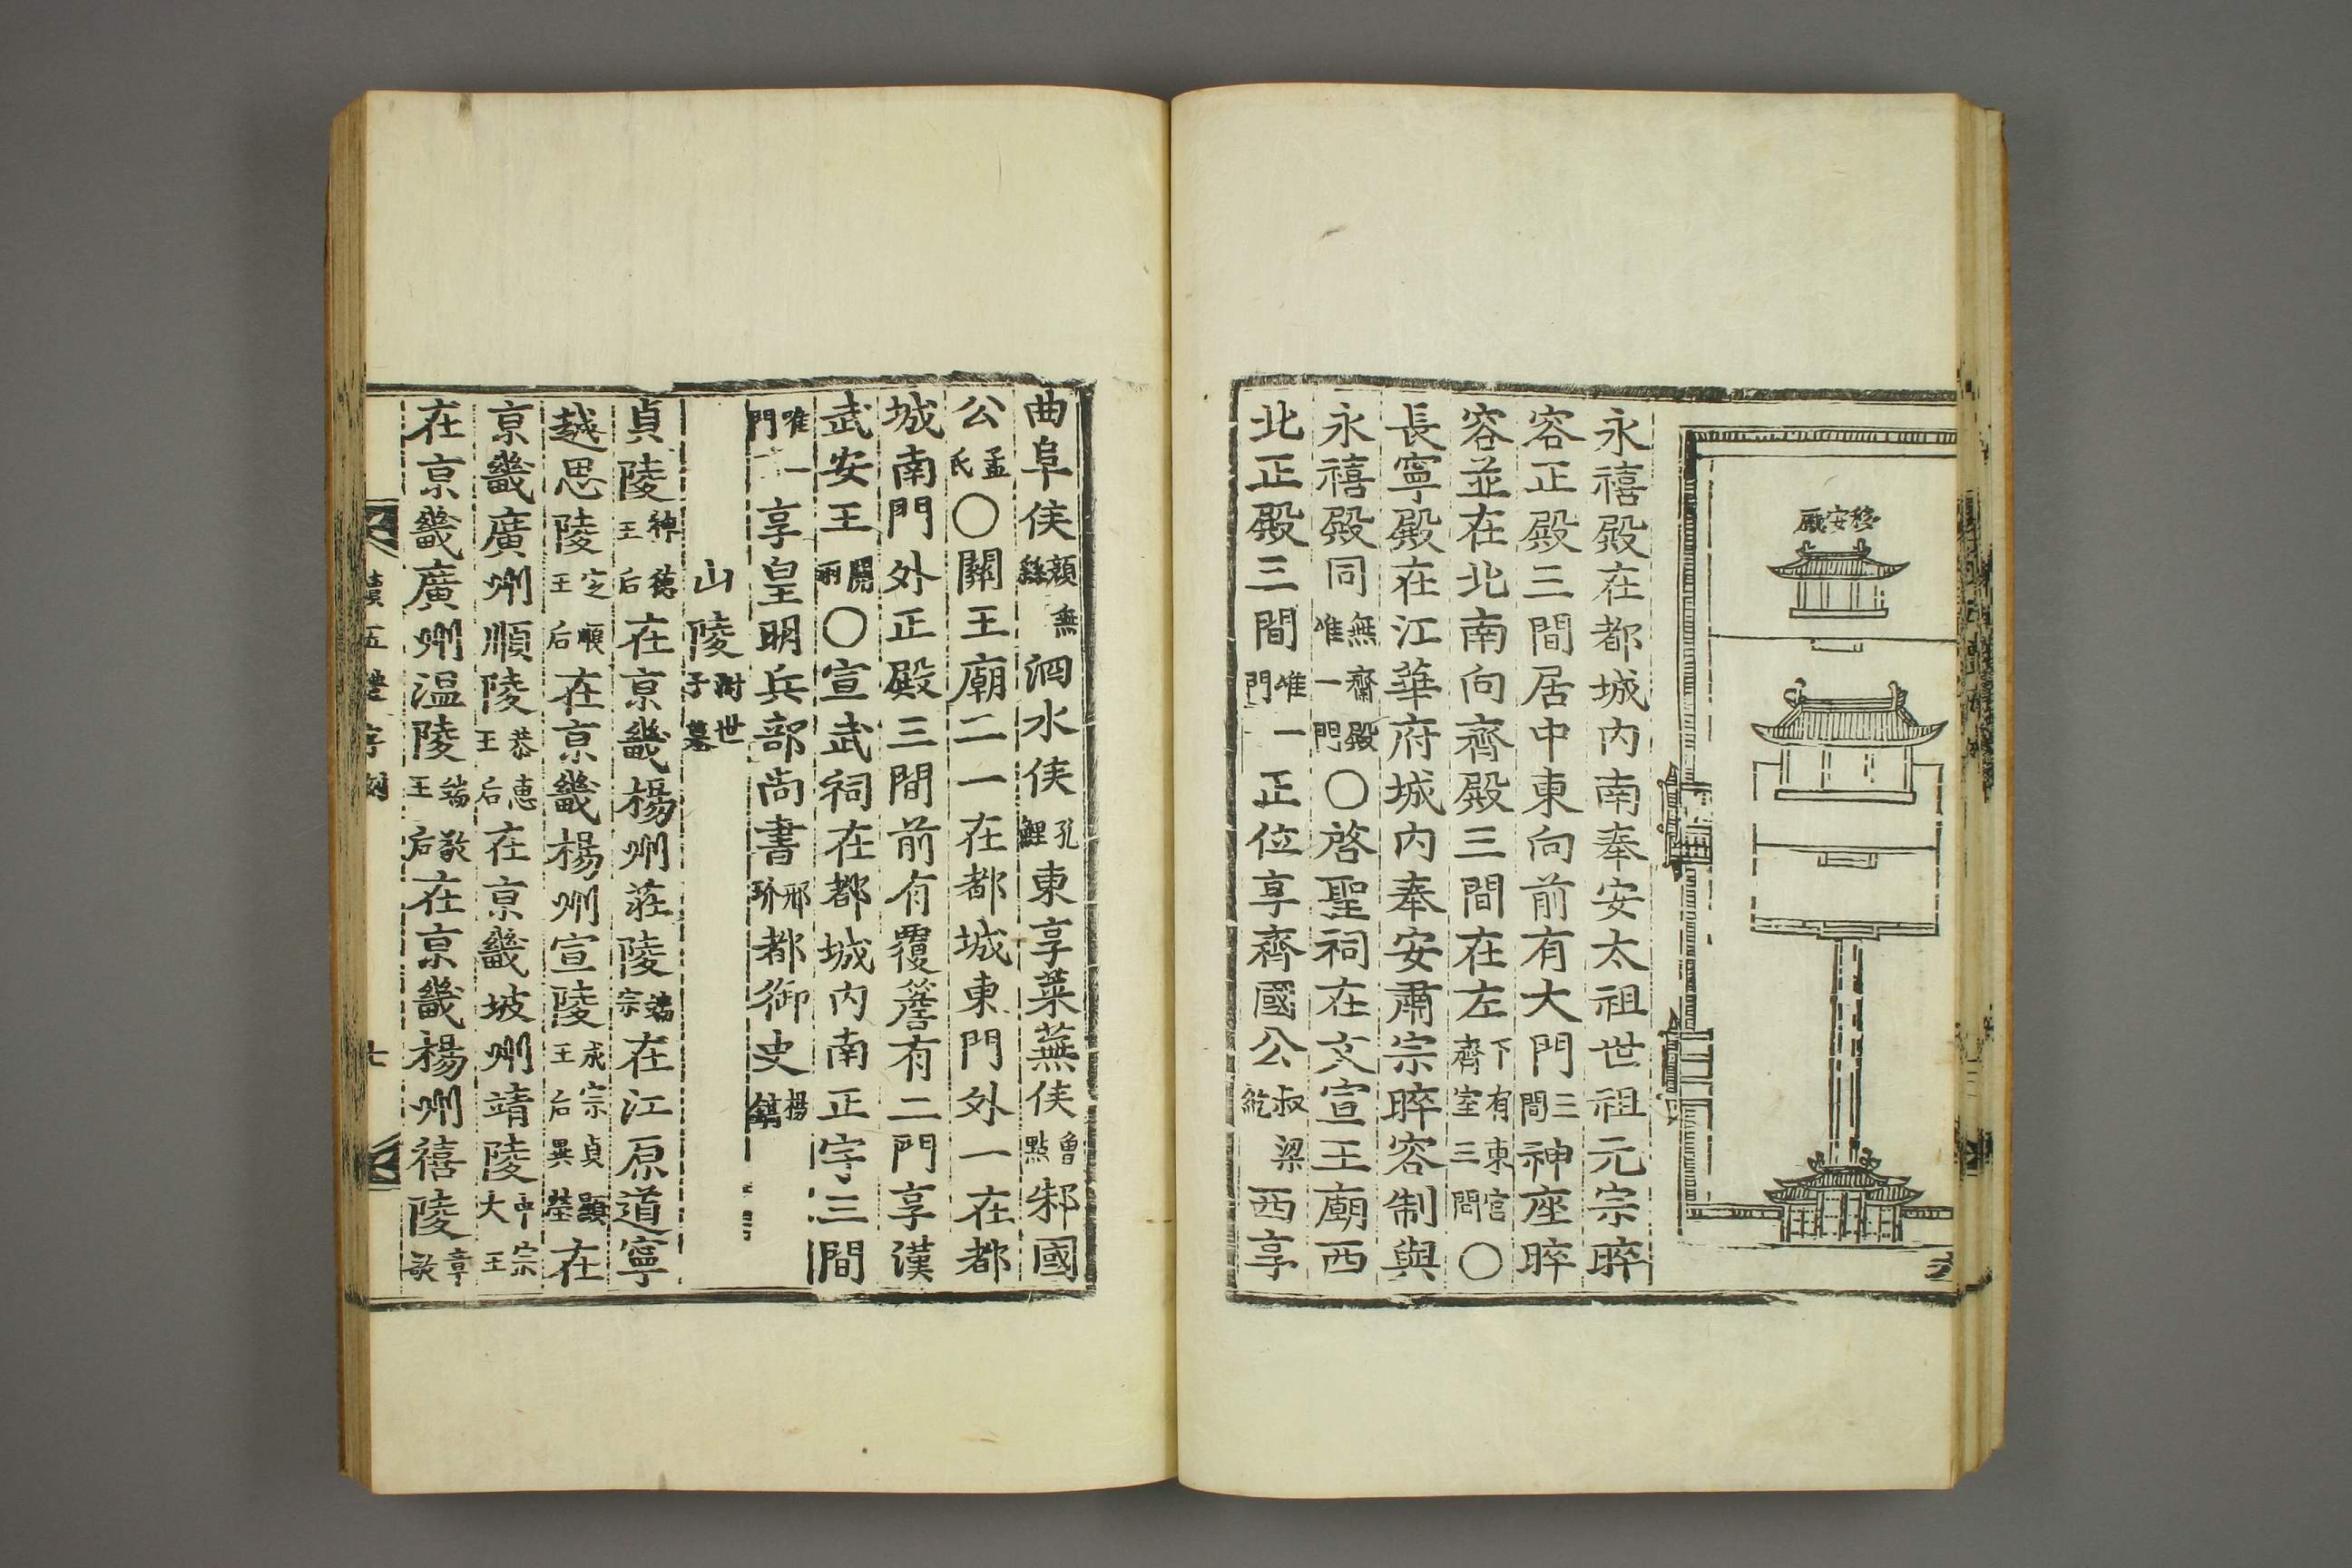 移安廳
永禧殿在都城內南奉安太祖世祖元宗晬
容正殿三間居中東向前有大門三間神座晬
容並在北南向齊殿三間在左下有東官齊室三間〇
長寧殿在江華府城內奉安肅宗晬容制與
永禧殿同無齋殿唯一門〇啓聖祠在文宣王廟西
北正殿三間唯一門正位享齊國公叔梁紇西享
曲阜侯顔無繇泗水侯孔鯉東享萊蕪侯曾點邾國
公孟氏〇關王廟二一在都城東門外一在都
城南門外正殿三間前有覆簷有二門享漢
武安王關羽〇宣武祠在都城內南正宇三間
唯一門享皇明兵部尚書邢玠都御史楊鎬
山陵附世子墓
貞陵神德王后在京畿楊州莊陵端宗在江原道寧
越思陵定順王后在京畿楊州宣陵成宗王后貞顯異塋在
京畿廣州順陵恭惠王后在京畿坡州靖陵中宗大王
在京畿廣州温陵端敬王后在京畿楊州禧陵章敬
續五禮序例
七